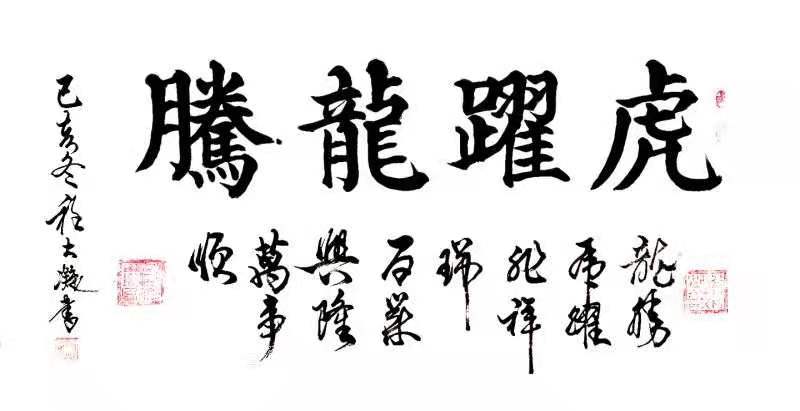 虎躍龍騰
龍騰
虎躍
兆祥
瑞
百業
興隆
萬事
順
己亥冬程大書